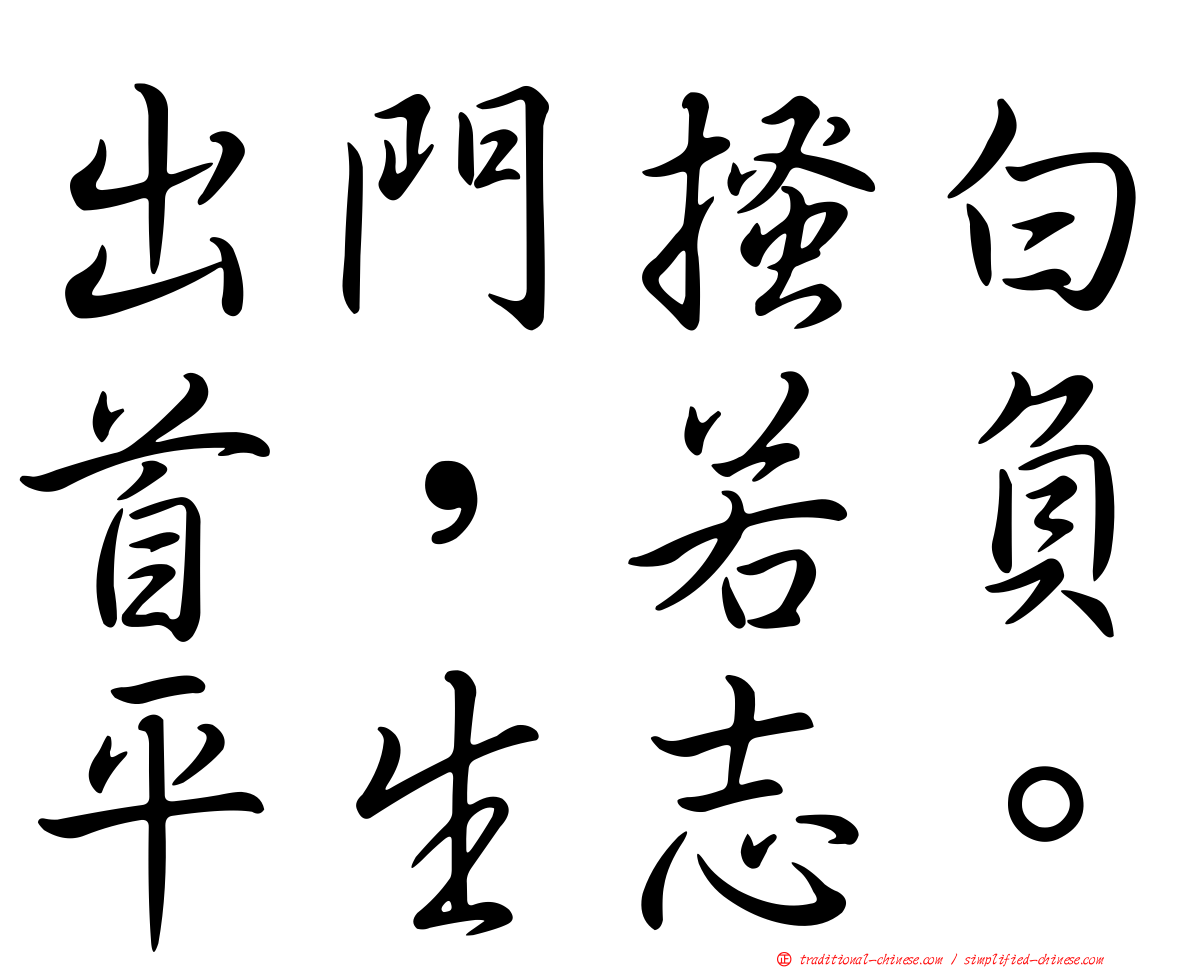 出門搔白
首，若負
平生志。
正 traditional-chinese.com / simplified-chinese.com